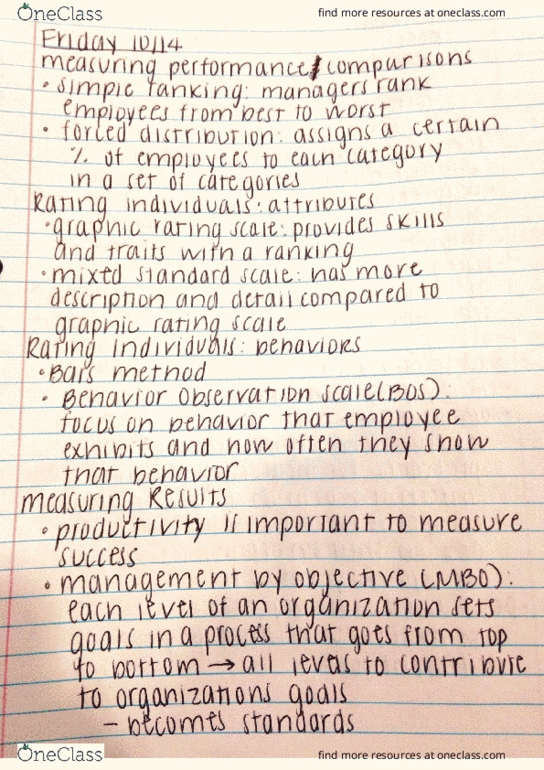 OneClass
find more resources at oneclass.com
Friday 10/14
measuring performance/comparisons
• simple ranking: managers rank
employees from best to worst
• forced distribution: assigns a certain
% of employees to each category
in a set of categories
Rating individuals: attributes
• graphic rating scale: provides skills
and traits with a ranking
• mixed standard scale: has more
description and detail compared to
graphic rating scale
Rating individuals: behaviors
• Bars method
• Behavior observation scale(BOS):
focus on behavior that employee
exhibits and how often they show
that behavior
measuring Results
• productivity is important to measure
success
• management by objective (MBO):
each level of an organization sets
goals in a process that goes from top
to bottom → all levels to contribute
to organizations goals
- becomes standards
OneClass
find more resources at oneclass.com